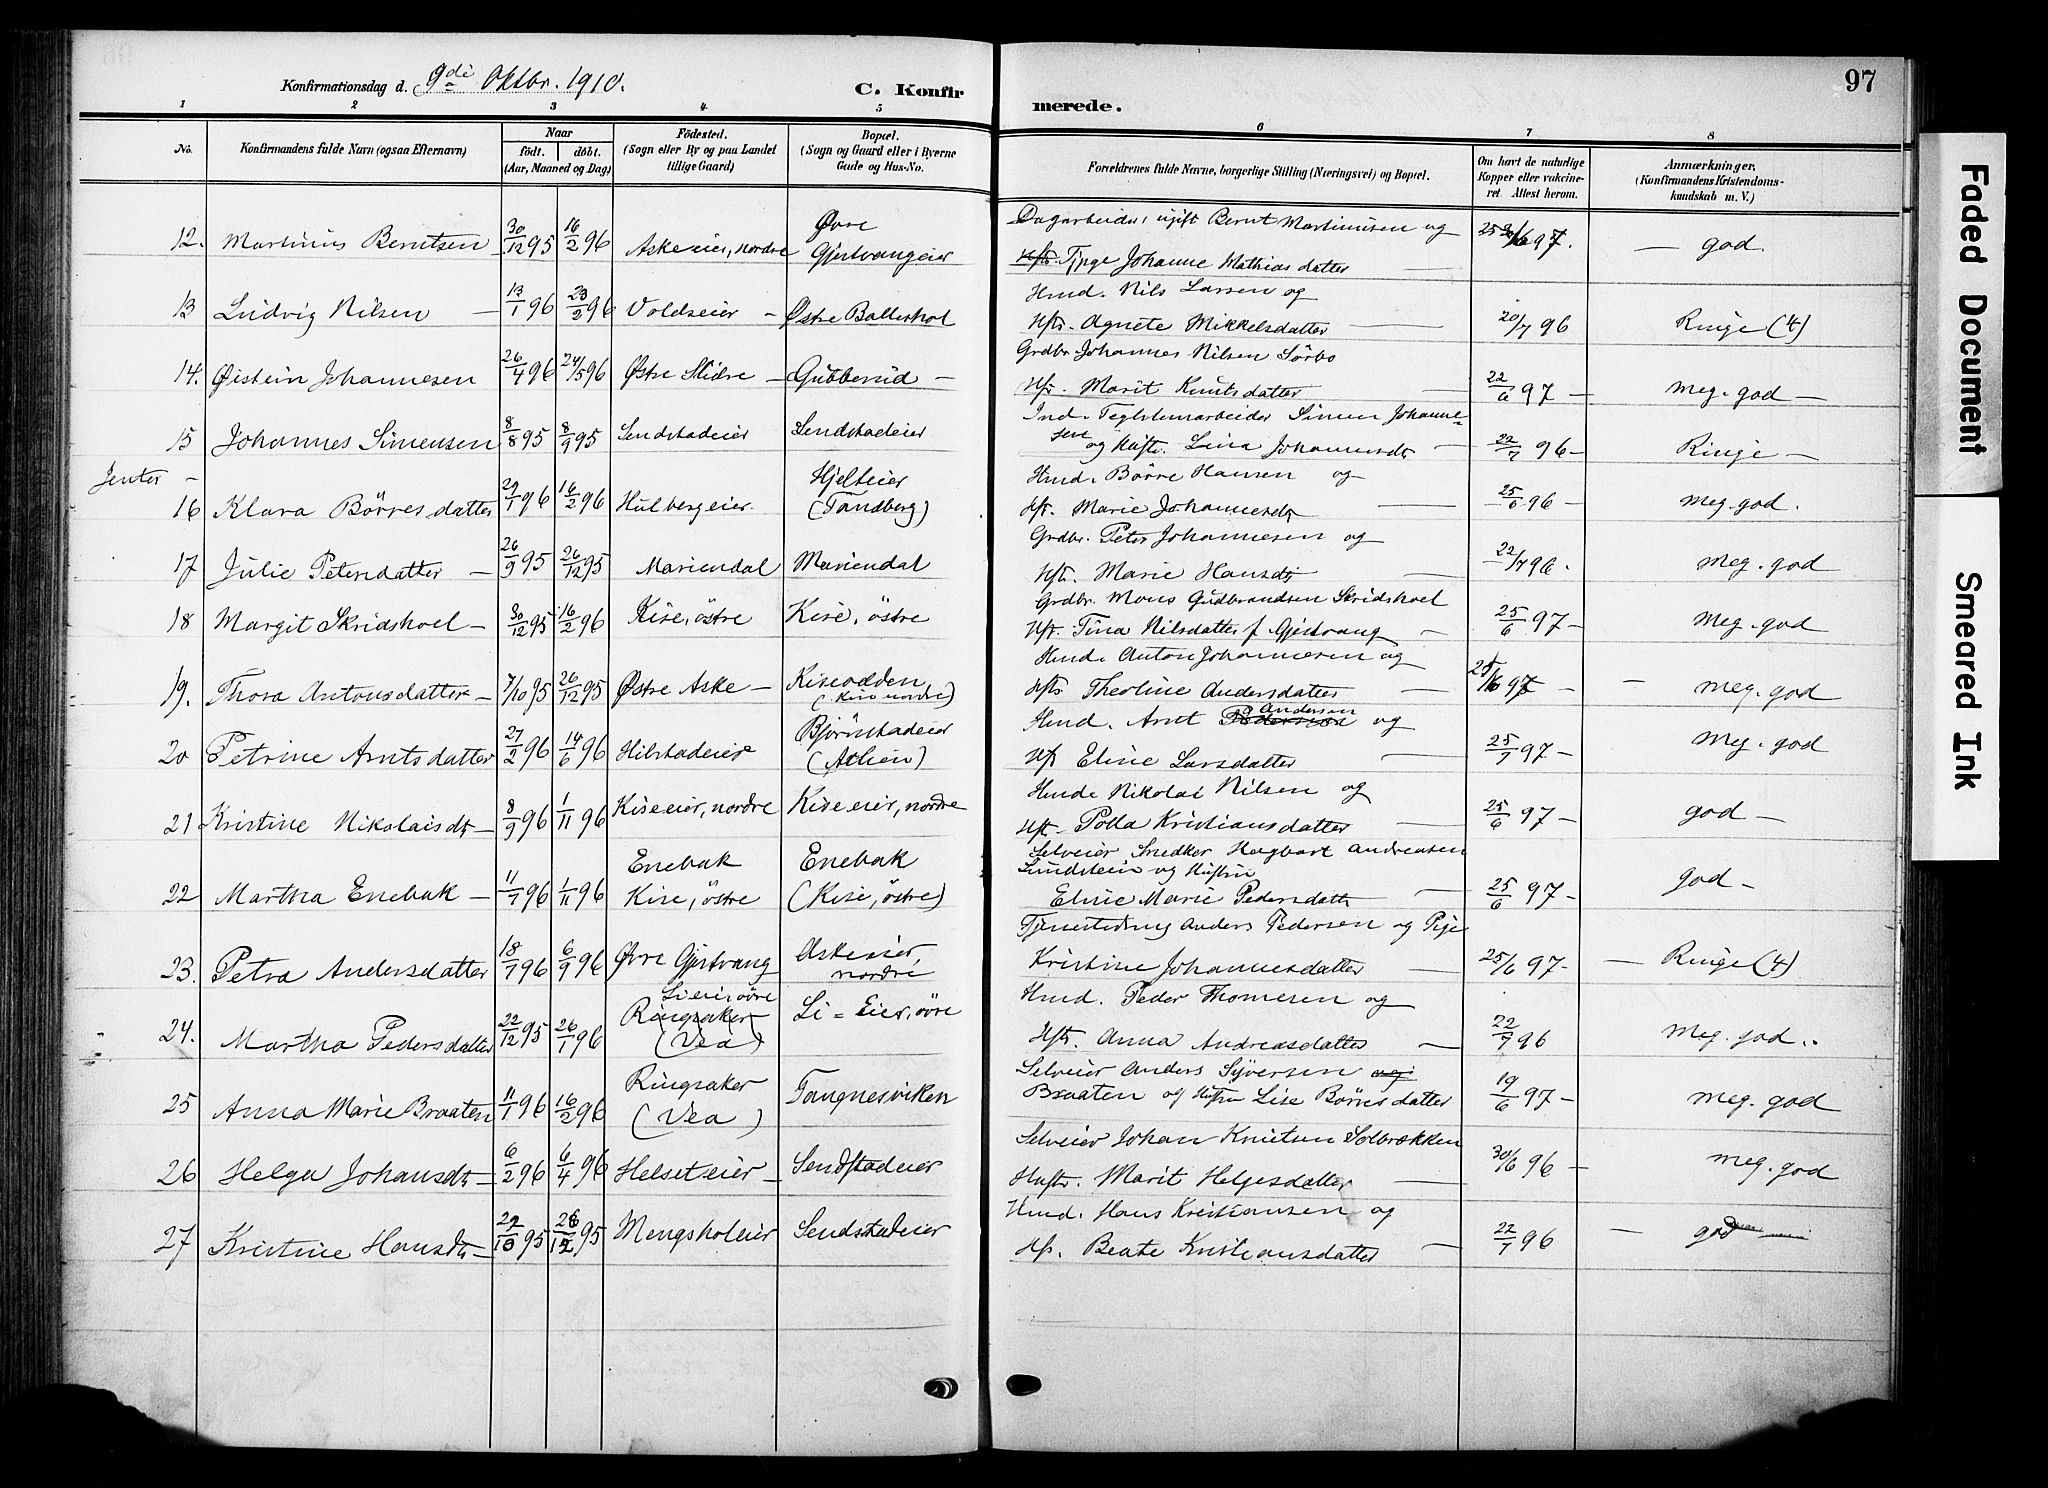 Konfirmationsdag d. 9de Oktbr. 1910.
C. Konfir
merede.
97
1 2 3 4 5 6 7 8
No.
Konfirmandens fulde Navn (ogsaa Efternavn)
Naar
födt. döbt.
(Aar, Maaned og Dag)
Födested.
(Sogn eller By og paa Landet
tillige Gaard)
Bopæl.
(Sogn og Gaard eller i Byerne
Gade og Hus-No.
Forældrenes fulde Navne, borgerlige Stilling (Næringsvei) og Bopæl.
Om havt de naturlige
Kopper eller vakcine-
ret. Attest herom.
Anmærkninger,
(Konfirmandens Kristendoms-
kundskab m. V.)
12. Martinius Berntsen 30/12 95 16/2 96 Aske eier, nordre Øvre Gjestvangeier
Dagarbeider, ugift Bernt Martinusen og
Pige Johanne Mathiasdatter 97. — god.
13 Ludvig Nilsen — 13/1 96 23/2 96 Voldseier — Østre Balleshol
Hmd. Nils Larsen og
Hftr. Agnete Mikkelsdatter 20/7 96 Ringe (4)
14. Øistein Johannesen 26/4 96 24/5 96 Østre Slidre — Gubberud —
Grdbr. Johannes Nilsen Sörbo
Hfr. Marit Knutsdatter 22/6 97 — meg. god —
15 Johannes Simensen 8/8 95 8/9 95 Sendstadeier Sendstadeier
Ind. Teglstenarbeider Simen Johanne-
sen og Huftr. Lina Johannesdtr 22/7 96 — Ringe —
Jenter —
16 Klara Börresdatter 29/1 96 16/2 96 Hulbergeier Hjelteier (Tandberg)
Hmd. Börre Hansen og
Hfr. Marie Johannesdtr 25/6 96 — meg. god.
17 Julie Petersdatter — 26/9 95 26/12 95 Mariendal Mariendal
Grdbr. Peter Johannesen og
Hftr. Marie Hansdtr 22/7 96. meg. god
18 Margit Skridshoel — 30/12 95 16/2 96 Kise, östre Kise, östre
Grdbr. Mons Gudbrandsen Skridshoel
Hfr. Tina Nilsdatter f. Gjestvang — 25/6 97 — meg. god
19. Thora Antonsdatter — 7/10 95 26/12 95 Østre Aske — Kiseodden, (Kise nordre)
Hmd. Anton Johannesen og
Hftr Theoline Andersdatter — 25/6 97 — meg. god
20 Petrine Arntsdatter 27/2 96 14/6 96 Hilstadeier Björnstadeier (Athen)
Hmd. Arnt Pedersen Andersen og
Hfr Eline Larsdatter 25/7 97 — meg. god
21 Kristine Nikolaisdtr — 8/9 96 1/11 96 Kise eier, nordre Kise eier, nordre
Hmd. Nikolai Nilsen og
Hftr. Polla Kristiansdatter 25/6 97 — god —
22 Martha Enebak — 11/7 96 1/11 96 Enebak Kise, östre Enebak (Kise, östre)
Selveier Snedker Hagbart Andreasen
Lundstein og Hustru
Eline Marie Pedersdatter 25/6 97 — god —
23. Petra Andersdatter 18/7 96 6/9 96 Øvre Gjestvang Askeeier, nordre
Tjenestedreng Anders Pedersen og Pige
Kristine Johannesdatter — 25/6 97 — Ringe (4)
24. Martha Pedersdatter 22/12 95 26/1 96 Lieier, övre Ringsaker (Vea) Li-Eier, övre
Hmd. Peder Thomesen og
Hftr. Anna Andreasdatter — 22/7 96 meg. god.
25 Anna Marie Braaten 11/1 96 16/2 96 Ringsaker (Vea) Tangnesviken
Selveier Anders Syversen og
Braaten og Hustru Lise Börresdatter 19/6 97 — meg. god
26 Helga Johansdtr — 6/2 96 6/4 96 Helseteier — Sendstadeier
Selveier Johan Knutsen Solbrækken
Huftr. Marit Helgesdatter 30/6 96 — meg. god
27 Kristine Hansdtr — 29/10 95 26/12 95 Mengsholeier Sendstadeier
Hmd. Hans Kristiansen og
Hfr. Beate Kristiansdatter 22/7 96 — god
Faded Document
Smeared Ink